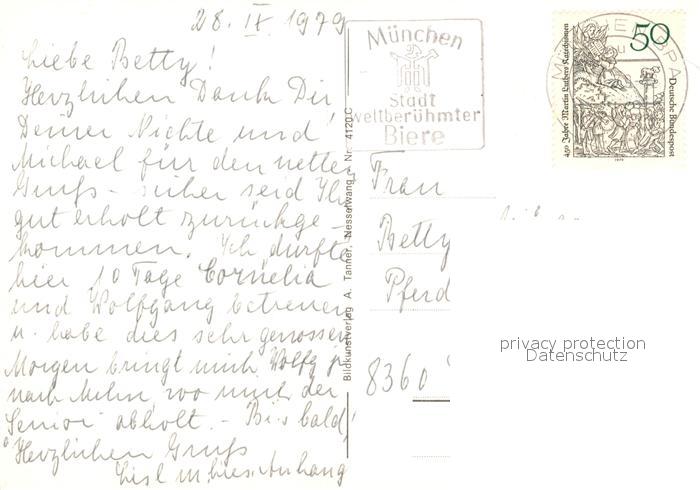 28. IX 1979
Liebe Betty!
Herzlichen Dank Dir
Deiner Nichte und
Michael für den netten
Gruß - sicher seid Ihr
gut erholt zurückge-
kommen. Ich durfte
hier 10 Tage Cornelia
und Wolfgang betreuen
u. habe dies sehr genossen
Morgen bringt mich Wolfg
nach Mchn, wo mich der
Senior abholt. - Bis bald,
Herzlichen Gruß
Liesl
München
Stadt
weltberühmter
Biere
50
450 Jahre Martin Luthers Katechismen
Deutsche Bundespost
1979
Bildkunstverlag A. Tanner, Nesselwang Nr. 4120 C
Frau
Betty
Pferd
8360
privacy protection
Datenschutz